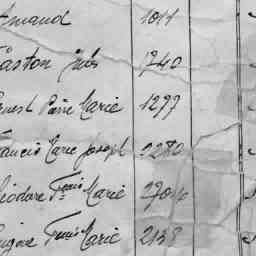 Amand 1011
Gaston Jules 1740
Ernest Pierre Marie 1277
Francis Marie Joseph 2280
Théodore Fçois Marie
Eugène Fçois Marie 2138